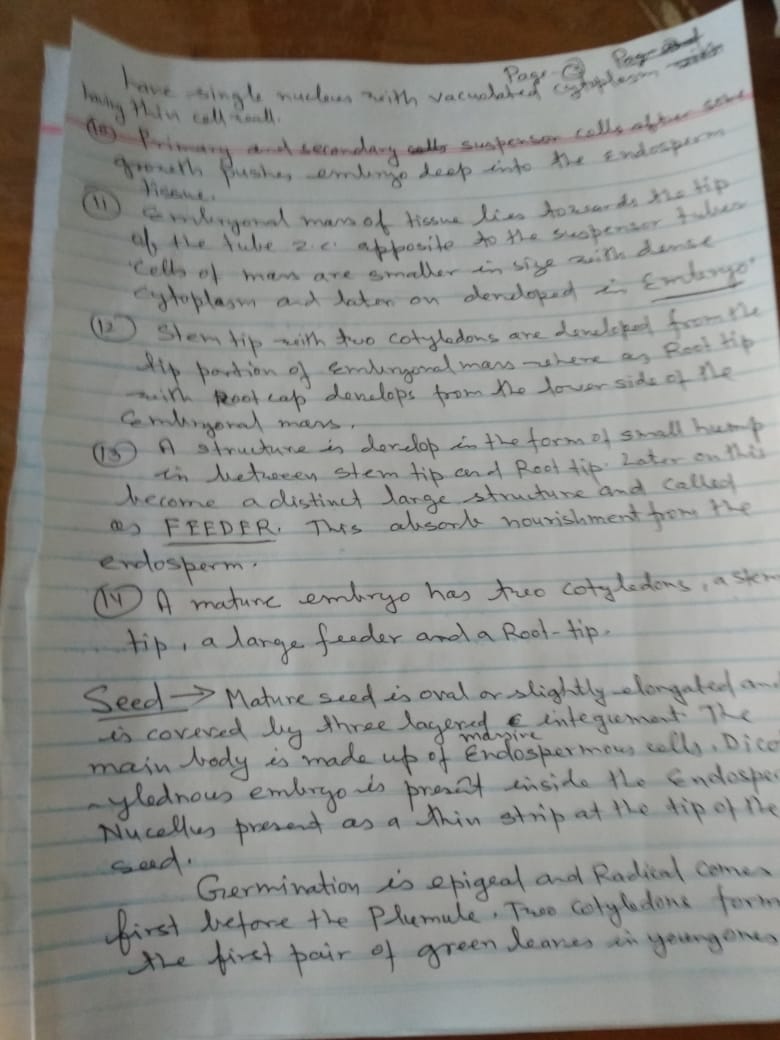 Page-
have single nucleus with vacuolated cytoplasm
having thin cell wall.
(10) Primary and secondary suspensor cells after some
growth pushes embryo deep into the Endosperm
tissue.
(11) Embryonal mass of tissue lies towards the tip
of the tube i.e. opposite to the suspensor tubes
Cells of mass are smaller in size with dense
cytoplasm and later on developed in Embryo
(12) Stem tip with two cotyledons are developed from the
tip portion of Embryonal mass where as Root tip
with Root cap develops from the lower side of the
Embryonal mass.
(13) A structure is develop in the form of small hump
in between stem tip and Root tip. Later on this
become a distinct large structure and called
as FEEDER. This absorb nourishment from the
endosperm.
(14) A mature embryo has two cotyledons, a stem
tip, a large feeder and a Root-tip.
Seed → Mature seed is oval or slightly elongated and
is covered by three layered integument The
main body is made up of massive Endospermous cells. Dico
-ylednous embryo is present inside the Endospe
Nucellus present as a thin strip at the tip of the
seed.
Germination is epigeal and Radical comes
first before the Plumule. Two cotyledons form
the first pair of green leaves in young ones